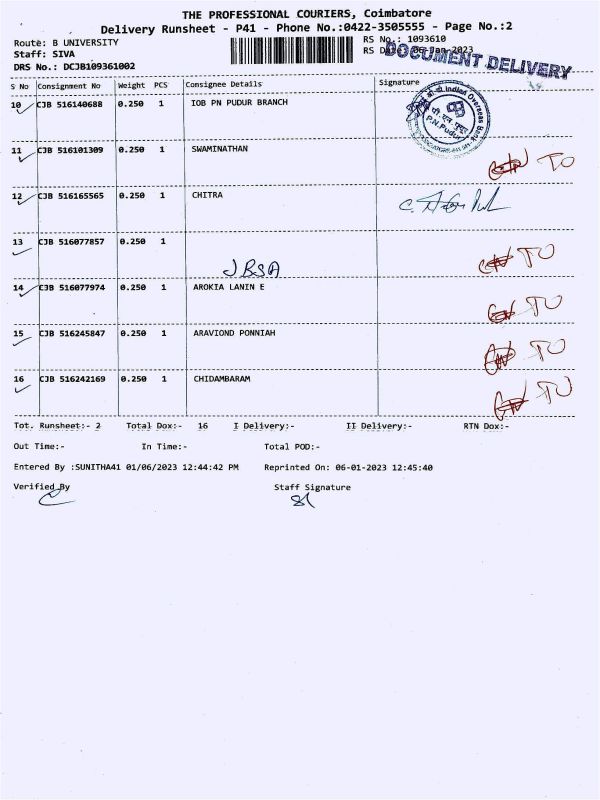 THE PROFESSIONAL COURIERS, Coimbatore
Delivery Runsheet - P41 - Phone No.:0422-3505555 - Page No.:2
Route: B UNIVERSITY
RS No.: 1093610
Staff: SIVA
RS Date: 06-Jan-2023
DOCUMENT DELIVERY
DRS No.: DCJB109361002
S No Consignment No Weight PCS Consignee Details Signature
10 CJB 516140688 0.250 1 IOB PN PUDUR BRANCH
Indian Overseas Bank
P.N.Pudur
11 CJB 516101309 0.250 1 SWAMINATHAN
TO
12 CJB 516165565 0.250 1 CHITRA
13 CJB 516077857 0.250 1
JBSA
TO
14 CJB 516077974 0.250 1 AROKIA LANIN E
TO
15 CJB 516245847 0.250 1 ARAVIOND PONNIAH
TO
16 CJB 516242169 0.250 1 CHIDAMBARAM
TO
Tot. Runsheet:- 2 Total Dox:- 16 I Delivery:- II Delivery:- RTN Dox:-
Out Time:- In Time:- Total POD:-
Entered By :SUNITHA41 01/06/2023 12:44:42 PM Reprinted On: 06-01-2023 12:45:40
Verified By Staff Signature